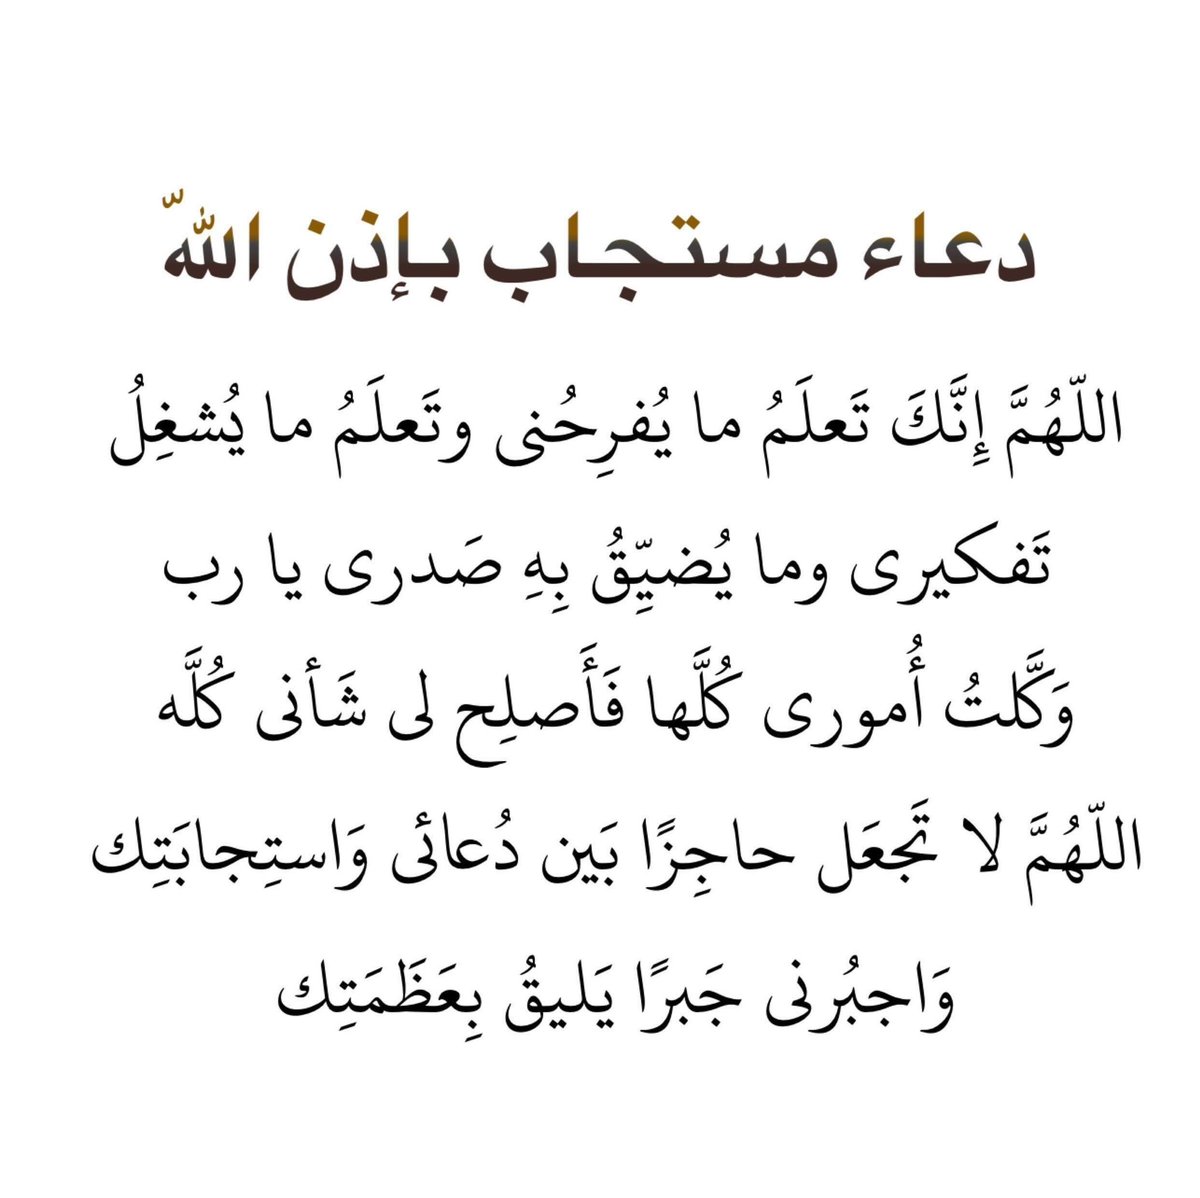 دعاء مستجاب بإذن اللّه
اللّهُمَّ إِنَّكَ تَعلَمُ ما يُفرِحُنى وتَعلَمُ ما يُشغِلُ
تَفكيرى وما يُضيِّقُ بِهِ صَدرى يا رب
وَكَّلتُ أُمورى كُلَّها فَأَصلِح لى شَأنى كُلَّه
اللّهُمَّ لا تَجعَل حاجِزًا بَين دُعائى وَاستِجابَتِك
وَاجبُرنى جَبرًا يَليقُ بِعَظَمَتِك